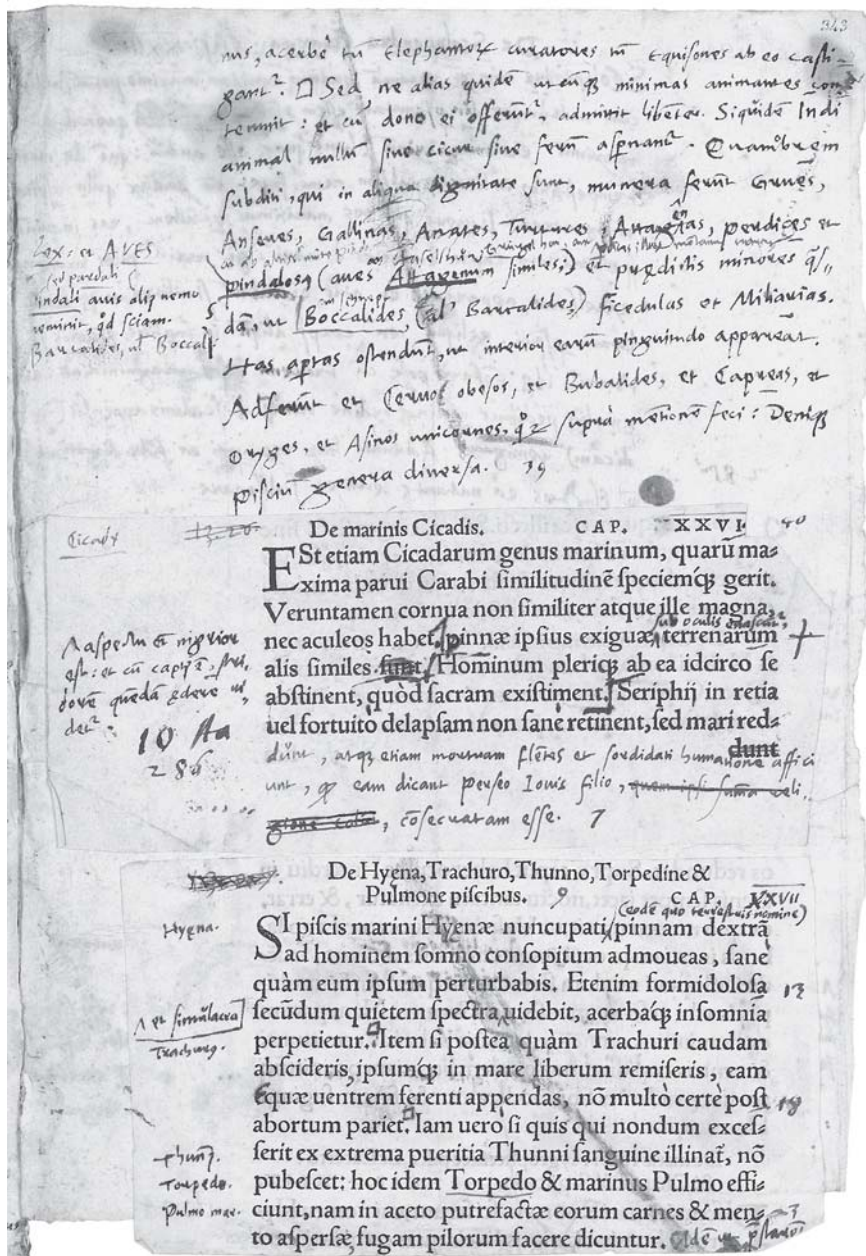 343
nus, acerbè tũ Elephantoꝝ curatores tũ Equisones ab eo casti-
gantʳ. □ Sed ne alias quidẽ utcũqꝫ minimas animantes con-
temnit: et cũ dono ei offerũtʳ, admittit libenter. Siquidẽ Indi
animal nullũ sive cicur sive ferũ aspernantʳ. Quamobrem
subditi, qui in aliqua dignitate sunt, munera ferũt Grues,
Anseres, Gallinas, Anates, Turtures, Attagenas, perdices et
pindalosqꝫ (aues Attagenum similes;) et prędictis minores
dam, ut Boccalides, (al' Barcalides,) ficedulas et Miliarias.
Has apertas ostendunt, ut interior earũ pinguitudo appareat.
Adferũt et Ceruos obesos, et Bubalides, et Capreas, et
Oryges, et Asinos unicornes, supra mẽtionẽ feci: Deniqꝫ
pisciũ genera diversa. 39
Lex: et AVES
indali auis aliꝰ nemo
meminit, qd sciam.
Barcalides, ul' Boccal
Cicadę
De marinis Cicadis. CAP. XXVI. 40
ESt etiam Cicadarum genus marinum, quarũ ma-
xima parui Carabi similitudinẽ speciemꝗꝫ gerit.
Veruntamen cornua non similiter atque ille magna,
nec aculeos habet. pinnæ ipsius exiguæ, sub oculis enascũtʳ, terrenarum
alis similes sunt. Hominum pleriqꝫ ab ea idcirco se
abstinent, quòd sacram existiment. Seriphij in retia
uel fortuitò delapsam non sanè retinent, sed mari red-
dunt
dũnt, atqꝫ etiam mortuam flẽtes et sordidati humatione affici
unt, eam dicant Perseo Iouis filio, quem ipsi summa reli
gione colũt, cõsecratam esse. 7
aspectu nigrior
est: et cũ capit stri
dorẽ quẽdã edere ui
detʳ.
10
286
De Hyena, Trachuro, Thunno, Torpedine &
Pulmone piscibus. 9 CAP. XXVII
(eodẽ quo terrestris nomine)
Hyęna.
SI piscis marini Hyenæ nuncupati pinnam dextrã
ad hominem somno consopitum admoueas, sanè
quàm eum ipsum perturbabis. Etenim formidolosa 13
secũdum quietem spectra uidebit, acerbaꝗꝫ insomnia
et simulacra
perpetietur. Item si postea quàm Trachuri caudam
Trachurꝰ.
abscideris, ipsumꝗꝫ in mare liberum remiseris, eam
equæ uentrem ferenti appendas, nõ multò certè post 18
abortum pariet. Iam uerò si quis qui nondum exces-
serit ex extrema pueritia Thunni sanguine illinat̃, nõ
thunꝰ.
pubescet: hoc idem Torpedo & marinus Pulmo effi-
Torpedo.
ciunt, nam in aceto putrefactæ eorum carnes & men-
Pulmo mar.
to aspersæ, fugam pilorum facere dicuntur.